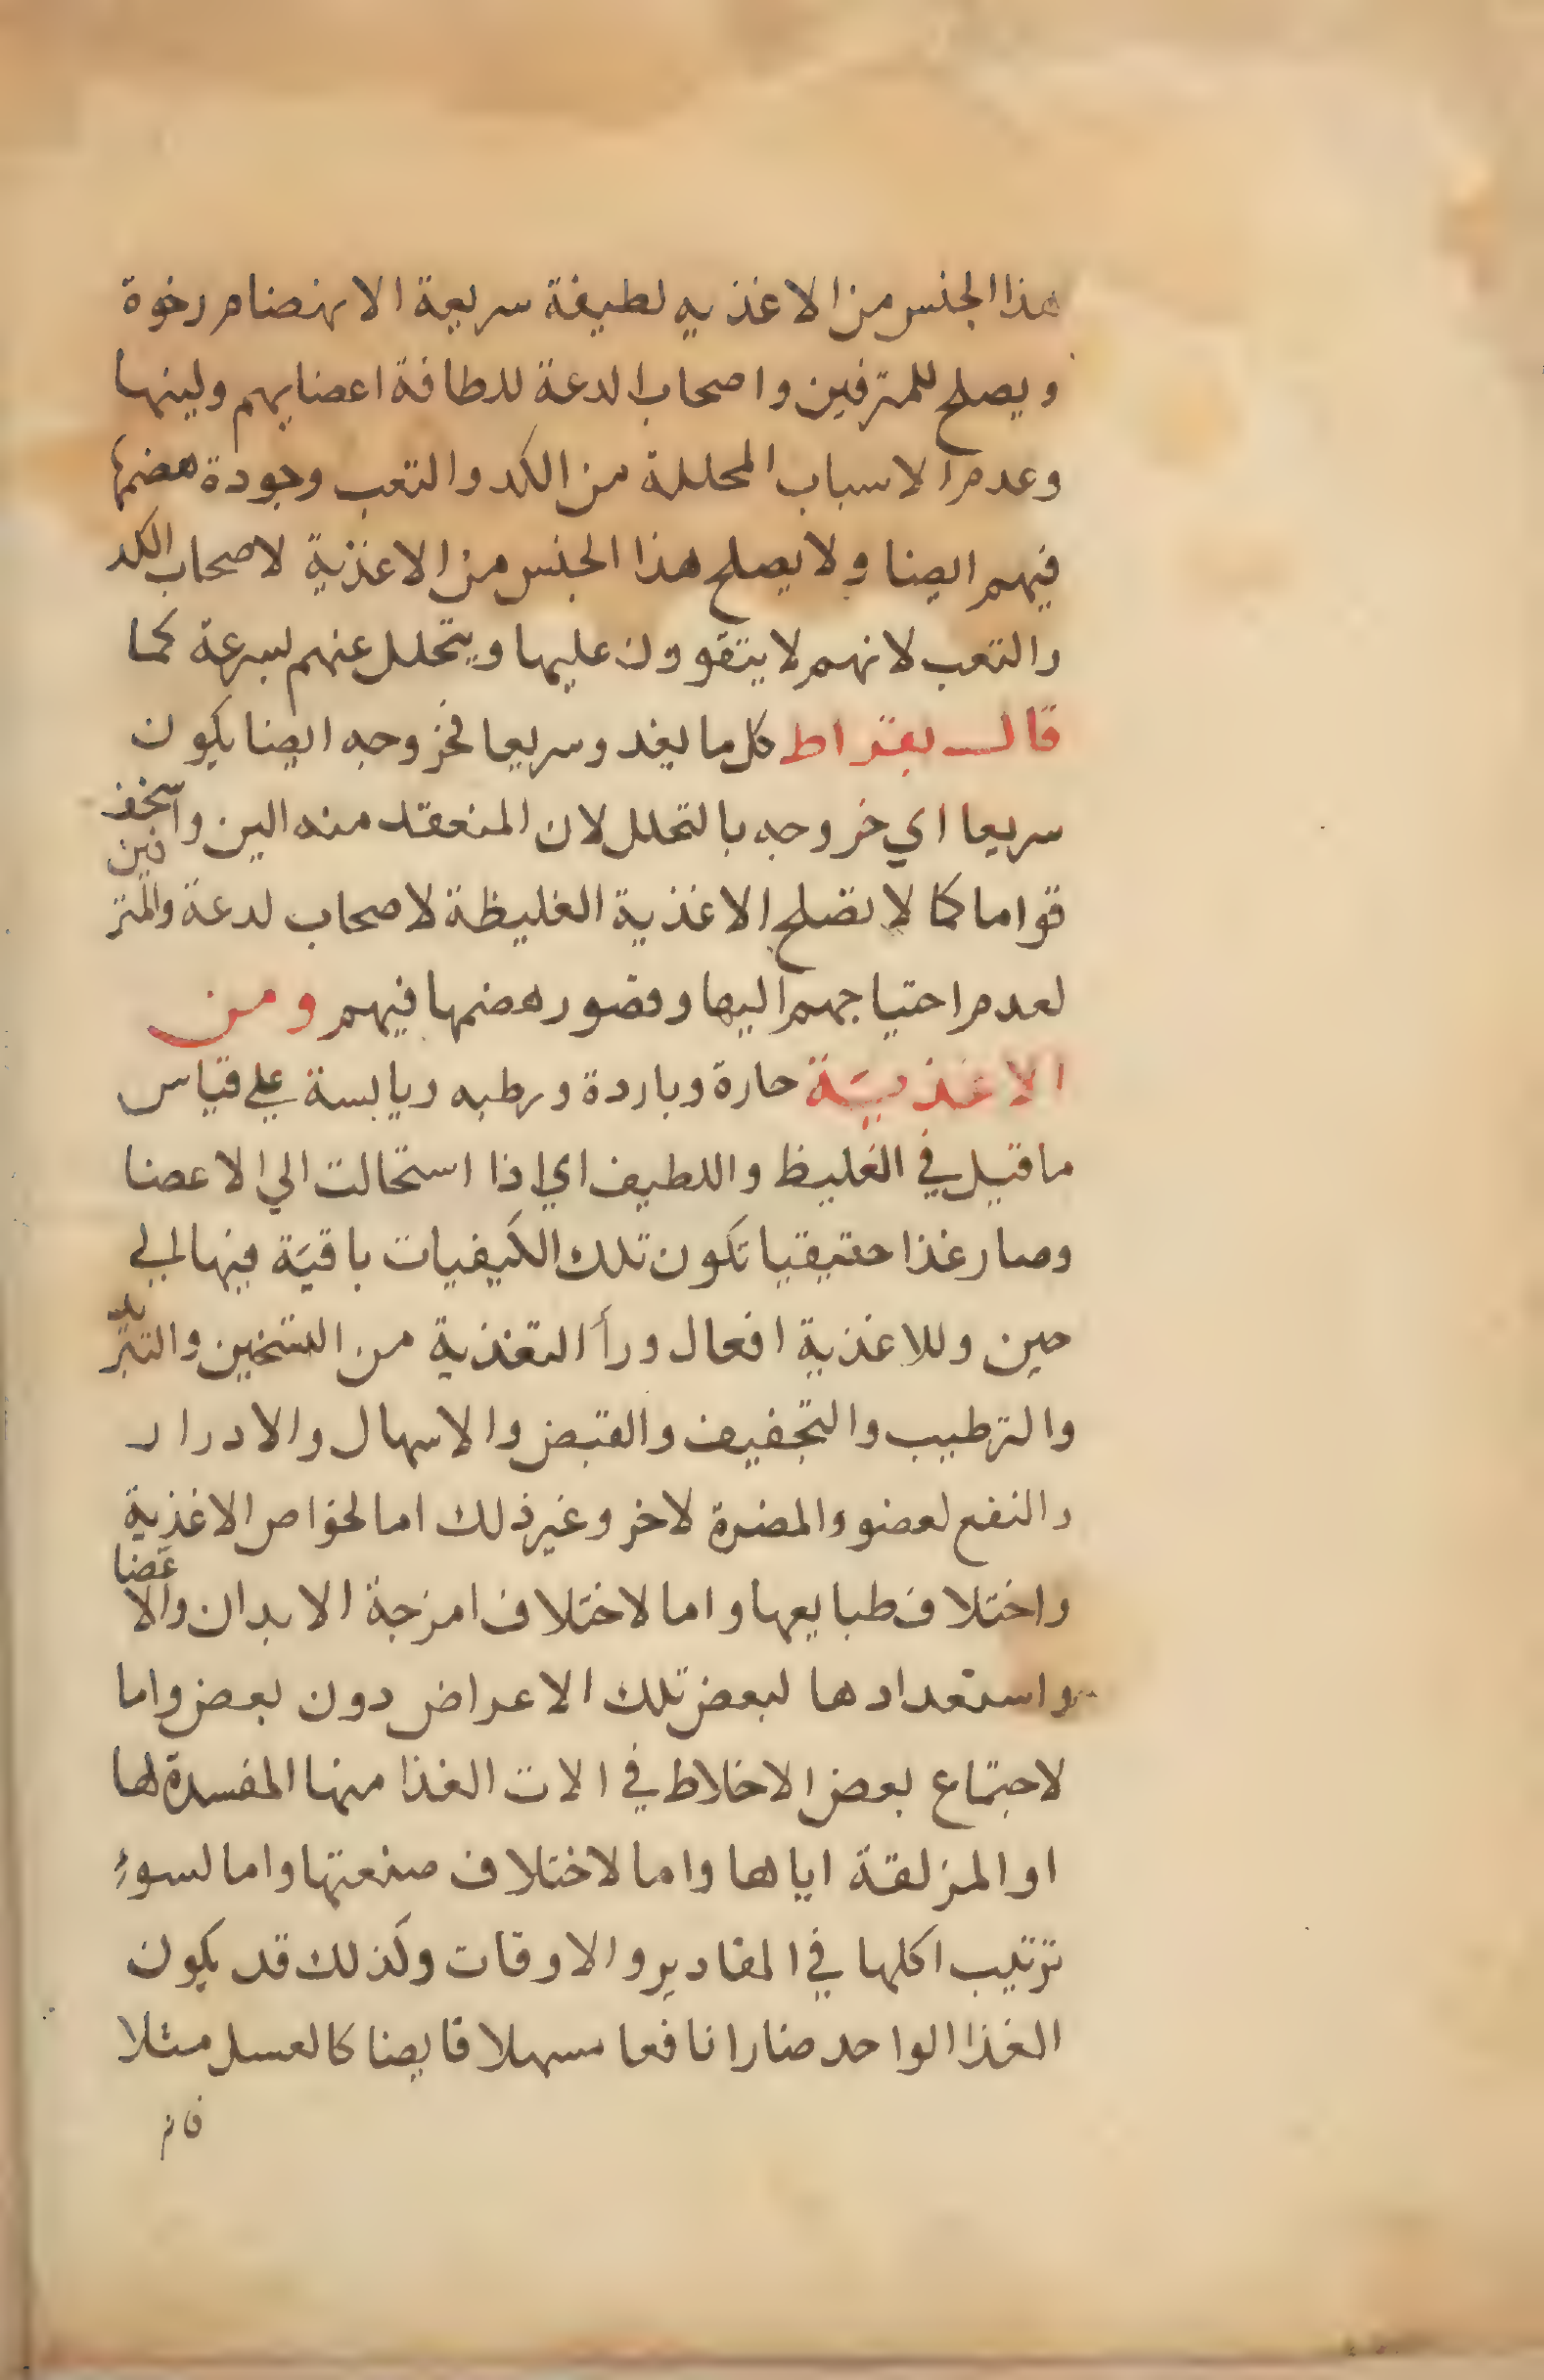 هذا الجنس من الاغذيه لطيفة سريعة الانهضام رخوة
ويصلح للمترفين واصحاب الدعة للطافة اعضايهم ولينها
وعدم الاسباب المحللة من الكد والتعب وجودة هضمها
فيهم ايضا ولا يصلح هذا الجنس من الاغذية لاصحاب الكد
والتعب لانهم لا يتقوون عليها ويتحلل عنهم بسرعة كما
قال بقراط كل ما يغدو سريعا فخروجه ايضا يكون
سريعا اي خروجه بالتحلل لان المنعقد منه الين واسخف
قواما كما لا تصلح الاغذية الغليظة لاصحاب لدعة والمترفين
لعدم احتياجهم اليها وقصور هضمها فيهم ومن
الاغذيية حارة وباردة ورطبه ويابسة علي قياس
ما قيل في الغليظ واللطيف اي اذا استحالت الي الاعضا
وصار غذا حقيقيا تكون تلك الكيفيات باقية فيها الي
حين وللاغذية افعال ورأ التغذية من التسخين والتبريد
والترطيب والتجفيف والقبض والاسهال والادرار
والنفع لعضو والمضرة لاخر وغير ذلك اما لخواص الاغذية
واختلاف طبايعها واما لاختلاف امزجة الابدان والاعضا
واستعدادها لبعض تلك الاعراض دون بعض واما
لاجتماع بعض الاخلاط في الات الغذا منها المفسدة لها
او المزلقة اياها واما لاختلاف صنعتها واما لسوء
ترتيب اكلها في المقادير والاوقات ولذلك قد يكون
الغذا الواحد ضارا نافعا مسهلا قابضا كالعسل مثلا
فانه